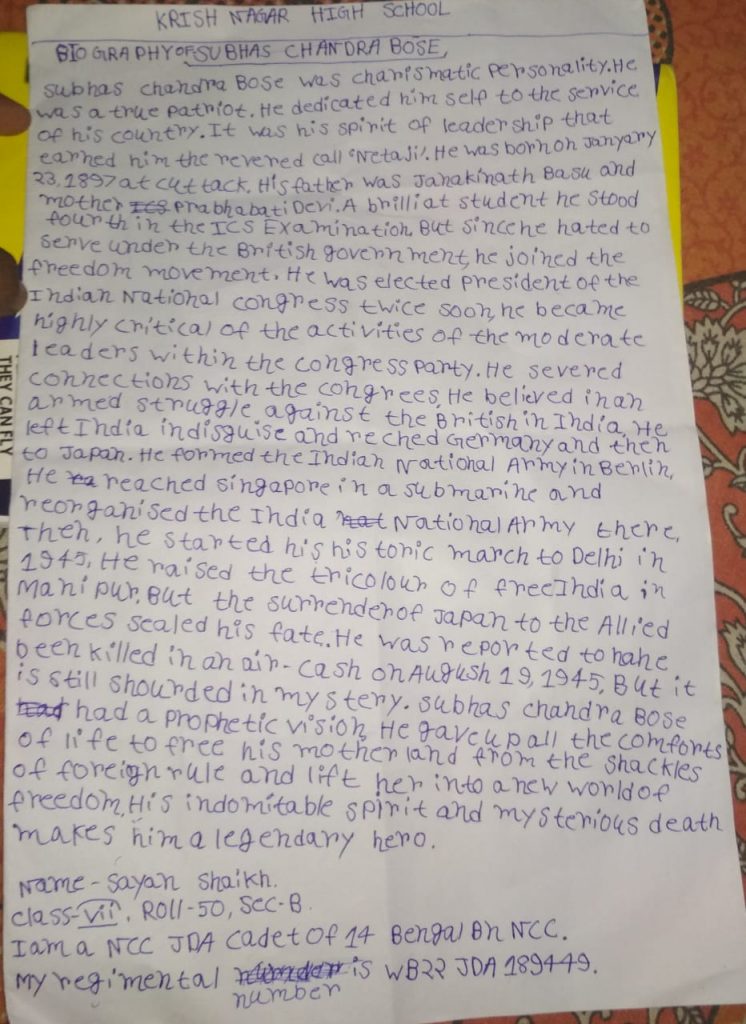 KRISH NAGAR HIGH SCHOOL
BIOGRAPHY OF SUBHAS CHANDRA BOSE,
subhas chandra Bose was charismatic personality. He
was a true patriot. He dedicated him self to the service
of his country. It was his spirit of leadership that
earned him the revered call 'Netaji'. He was born on Janyary
23, 1897 at cuttack. His father was Janakinath Basu and
mother Prabhabati Devi. A brilliat student he stood
fourth in the ICS Examination, But since he hated to
serve under the British government, he joined the
freedom movement. He was elected President of the
Indian National congress twice soon, he became
highly critical of the activities of the moderate
leaders within the congress party. He severed
connections with the congrees, He believed in an
armed struggle against the British in India, He
left India indisguise and reched Germany and then
to Japan. He formed the Indian National Army in Berlin,
He reached singapore in a submarine and
reorganised the India National Army there,
Then, he started his historic march to Delhi in
1945, He raised the tricolour of free India in
Manipur. But the surrender of Japan to the Allied
forces sealed his fate. He was reported to hahe
been killed in an air-cash on August 19, 1945, But it
is still shourded in mystery. subhas chandra Bose
had a prophetic vision, He gave up all the comforts
of life to free his motherland from the shackles
of foreign rule and lift her into a new world of
freedom, His indomitable spirit and mysterious death
makes him a legendary hero.
Name - Sayan Shaikh.
class - VII, ROLL-50, Sec-B.
I am a NCC JDA cadet Of 14 Bengal Bn NCC.
My regimental number is WB22 JDA 189449.
THEY CAN FLY